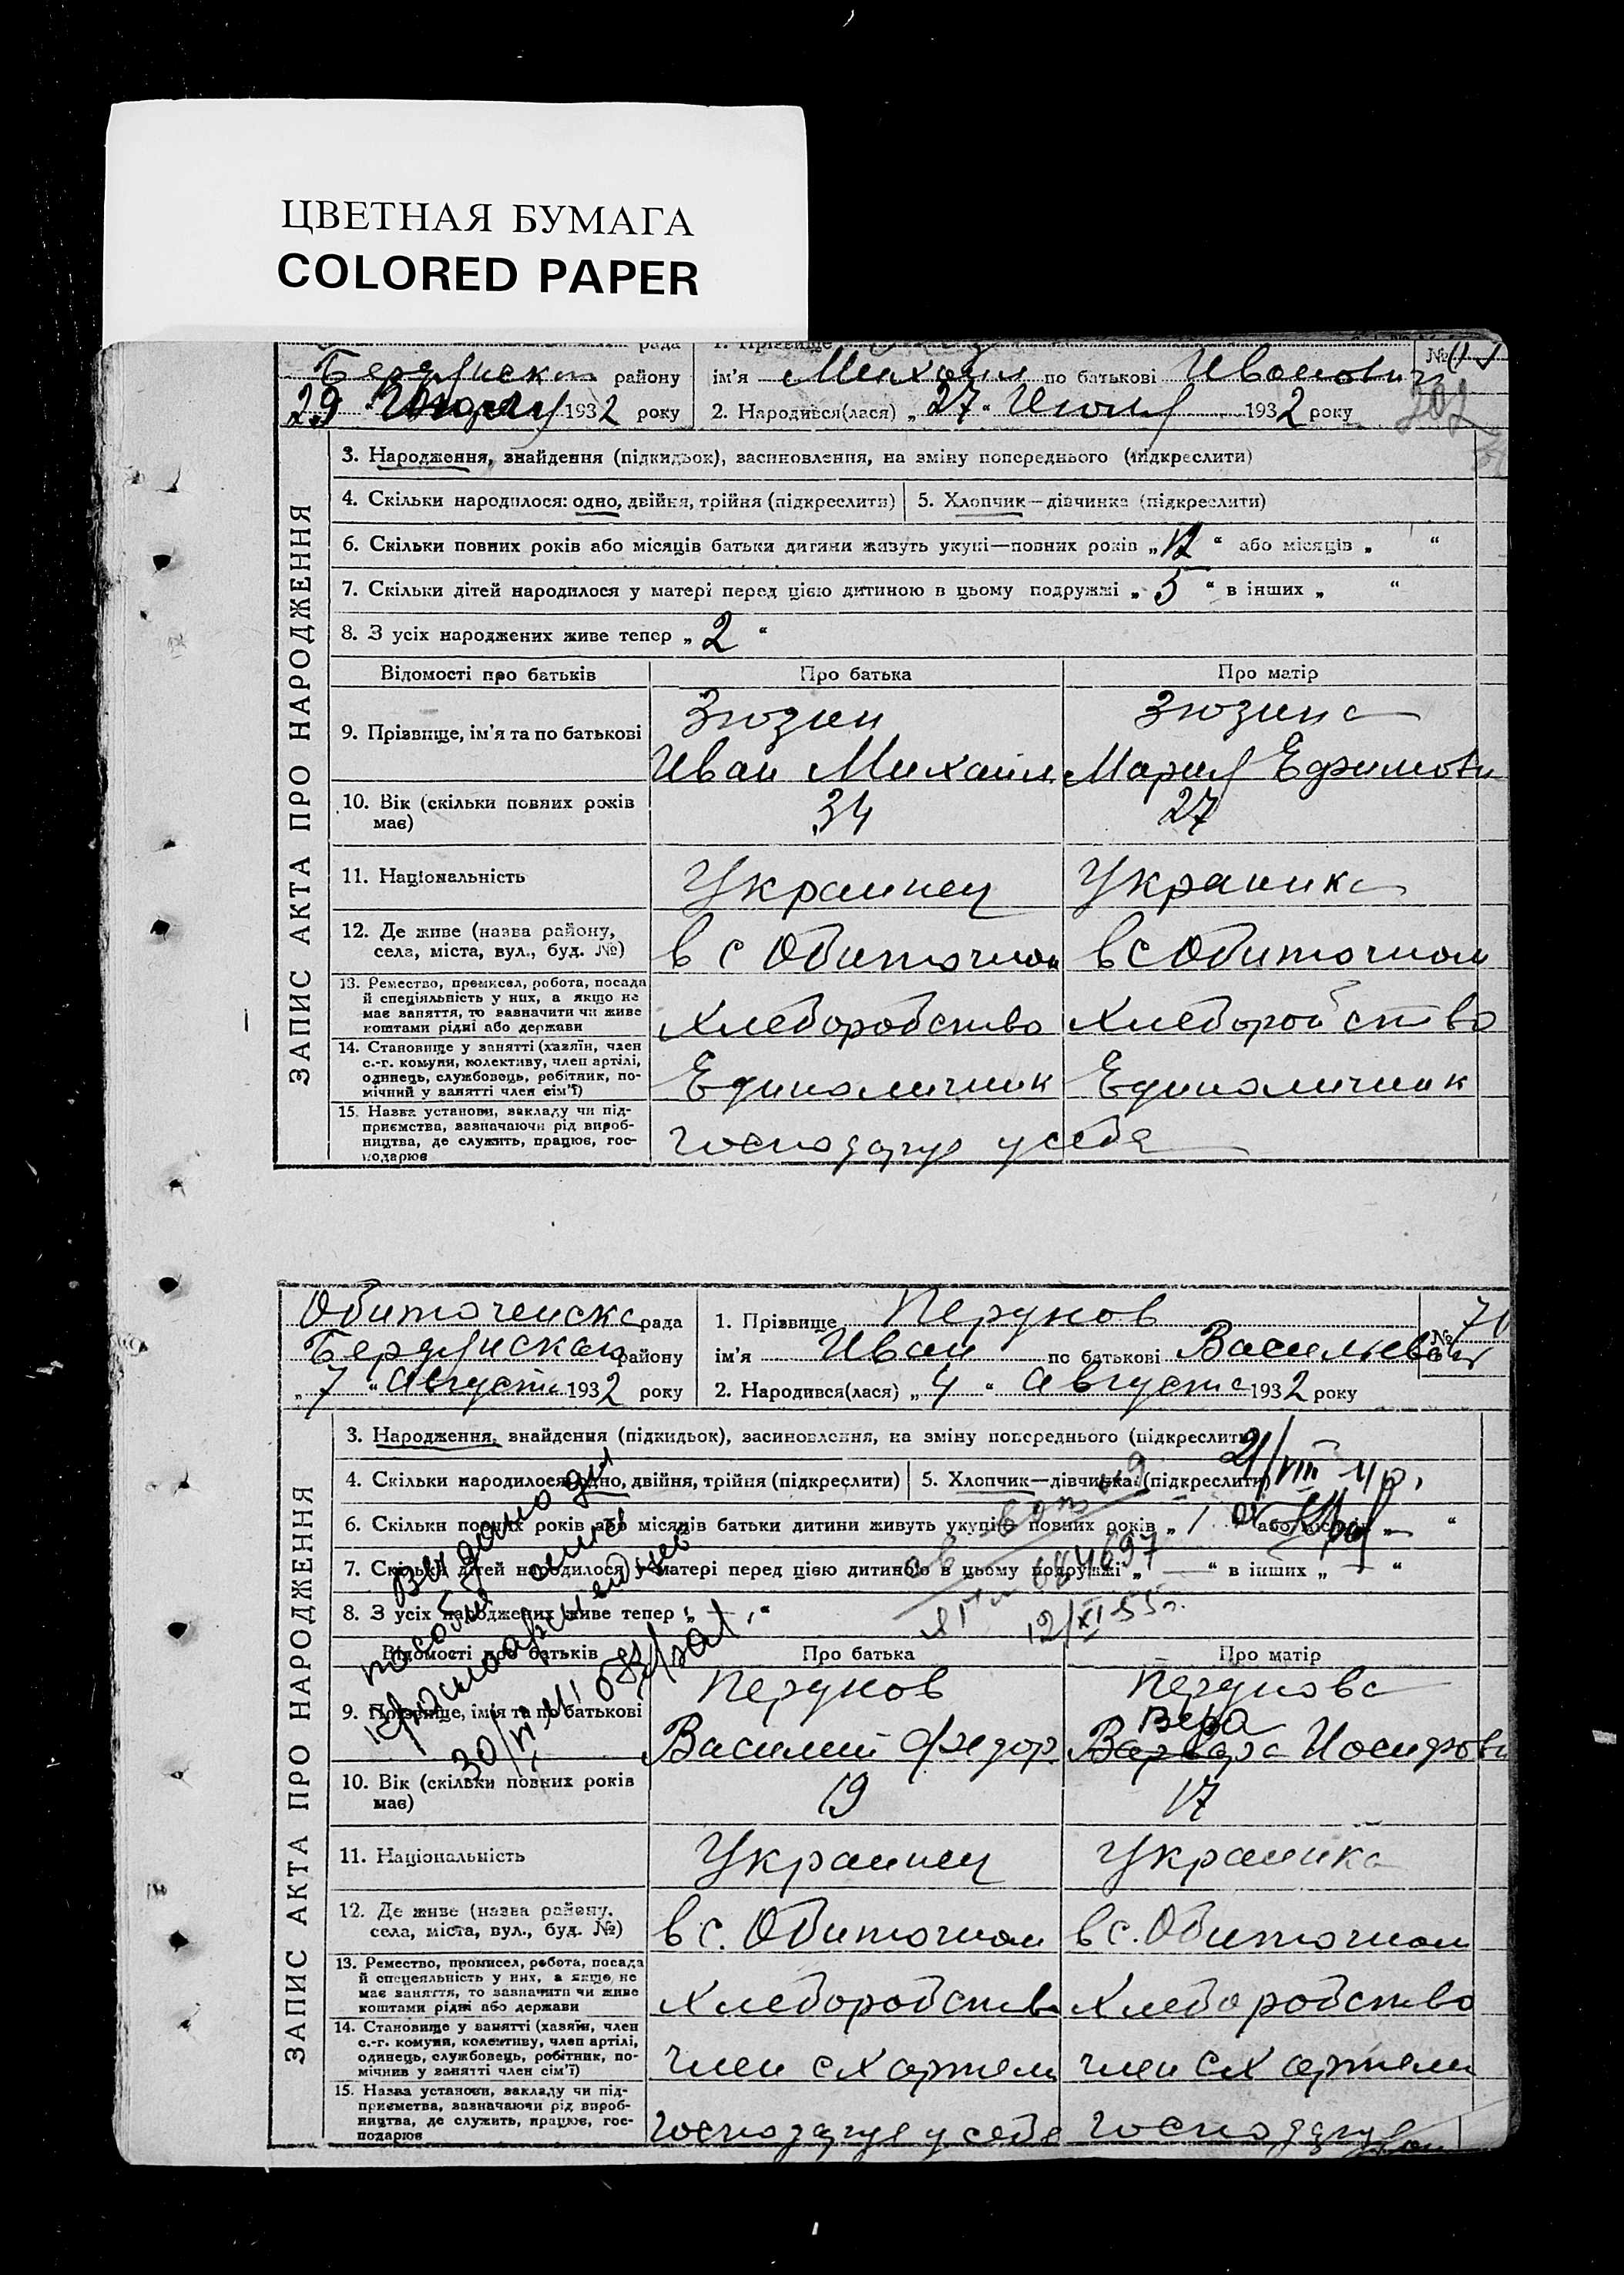 ЦВЕТНАЯ БУМАГА
COLORED PAPER
рада 1. Прізвище
району ім'я Михаил по батькові Иванович №
29 1932 року 2. Народився(лася) „ 27 “ 1932 року 202
ЗАПИС АКТА ПРО НАРОДЖЕННЯ
3. Народження, знайдення (підкидьок), засиновлення, на зміну попереднього (підкреслити)
4. Скільки народилося: одно, двійня, трійня (підкреслити) 5. Хлопчик—дівчинка (підкреслити)
6. Скільки повних років або місяців батьки дитини живуть укупі—повних років „ 12 “ або місяців „ “
7. Скільки дітей народилося у матері перед цією дитиною в цьому подружжі „ 5 “ в інших „ “
8. З усіх народжених живе тепер „ 2 “
Відомості про батьків Про батька Про матір
9. Прізвище, ім'я та по батькові
Зюзин Зюзина
Иван Михаил Мария Ефимовн
10. Вік (скільки повних років має) 34 27
11. Національність Украинец Украинка
12. Де живе (назва району, села, міста, вул., буд. №) в с Обиточном в с Обиточном
13. Ремество, промисел, робота, посада
й спеціяльність у них, а якщо не
має заняття, то зазначити чи живе
коштами рідні або держави
Хлеборобство Хлеборобство
14. Становище у занятті (хазяїн, член
с.-г. комуни, колективу, член артілі,
одинець, службовець, робітник, по-
мічний у занятті член сім'ї)
Единоличник Единоличник
15. Назва установи, закладу чи під-
приємства, зазначаючи рід вироб-
ництва, де служить, працює, гос-
подарює
господарує у себе
Обиточенска рада 1. Прізвище Перунов № 70
району ім'я Иван по батькові Васильевич
„ 7 “ Августа 1932 року 2. Народився(лася) „ 4 “ Августа 1932 року
ЗАПИС АКТА ПРО НАРОДЖЕННЯ
3. Народження, знайдення (підкидьок), засиновлення, на зміну попереднього (підкреслити)
21/VIII 41 р.
4. Скільки народилося: одно, двійня, трійня (підкреслити) 5. Хлопчик—дівчинка (підкреслити)
6. Скільки повних років або місяців батьки дитини живуть укупі—повних років „ 1 “ або місяців „ — “
7. Скільки дітей народилося у матері перед цією дитиною в цьому подружжі „ — “ в інших „ — “
8. З усіх народжених живе тепер „ — “
12/XI 55 г.
Відомості про батьків Про батька Про матір
9. Прізвище, ім'я та по батькові
Перунов Перунова
Вера
Василий Федор Варвара Иосифовн
10. Вік (скільки повних років має) 19 17
11. Національність Украинец Украинка
12. Де живе (назва району, села, міста, вул., буд. №) в с. Обиточном в с. Обиточном
13. Ремество, промисел, робота, посада
й спецеяльність у них, а якщо не
має заняття, то зазначити чи живе
коштами рідні або держави
Хлеборобств Хлеборобство
14. Становище у занятті (хазяїн, член
с.-г. комуни, колективу, член артілі,
одинець, службовець, робітник, по-
мічнив у занятті член сім'ї)
член с х артели член с х артели
15. Назва установи, закладу чи під-
приємства, зазначаючи рід вироб-
ництва, де служить, працює, гос-
подарює
господарує у себе